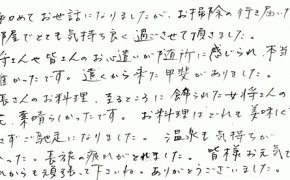 初めてお世話になりましたが、お掃除の行き届いた
部屋でとても気持ち良く過ごさせて頂きました。
将さんや皆さんのお心遣いが随所に感じられ、本当
難かったです。遠くから来た甲斐がありました。
長さんのお料理、至るところに飾られた女将さんの
花、素晴らしかったです。お料理はどれも美味しく
さずご馳走になりました。温泉も気持ちが
かった。長旅の疲れがとれました。皆様お元気で
れからも頑張って下さいね。ありがとうございました。